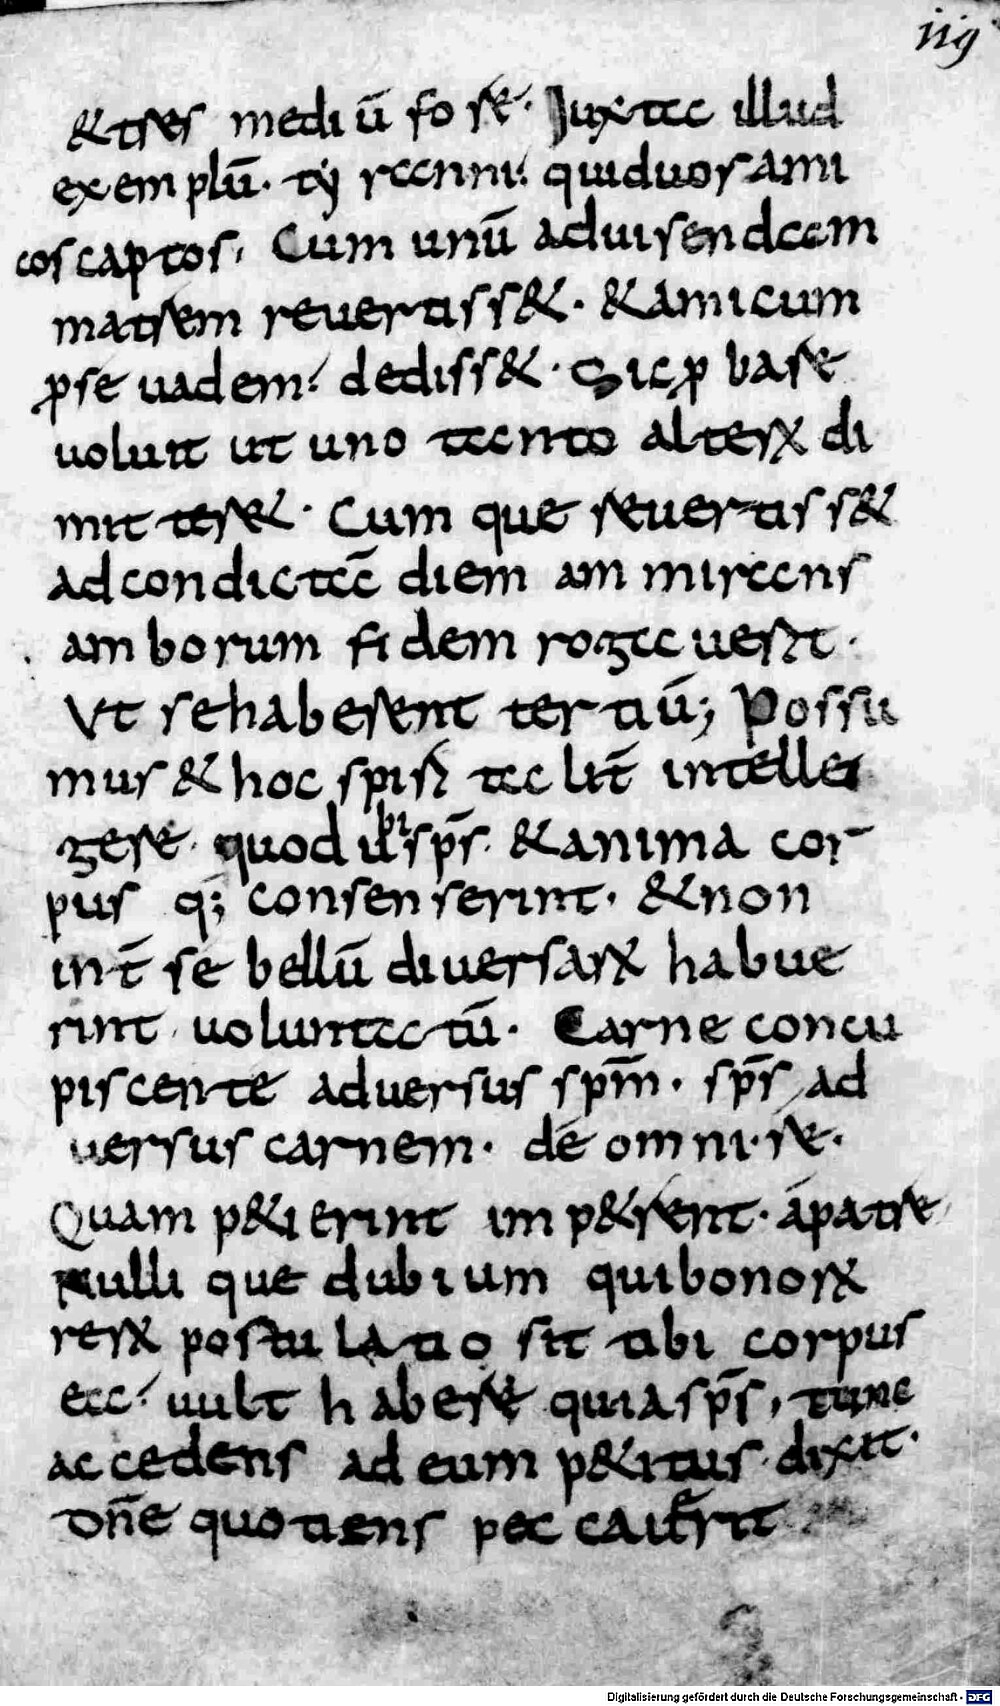 iig
&tres mediū fore. Juxta illud
exemplū. tyranni. qui duos ami
cos captos. Cum unū ad uisendam
matrem reuertiss&. & amicum
ꝓ se uadem. dediss&. Sic ꝓbare
uoluit ut uno tento alterꝝ di
mitter&. Cum que reuertiss&
ad condictā diem ammirans
amborum fidem rogauerit.
Ut se haberent tertiū; Possu
mus & hoc spirit talit̄ intelle
gere. quod ubi sp̄s. & anima cor
pus q; consenserint. & non
int̄ se bellū diuersarꝝ habue
rint uoluntatū. Carne concu
piscente aduersus sp̄m. sp̄s ad
uersus carnem. de omni re.
Quam p&ierint imp&rent. a patre
nulli que dubium qui bonorꝝ
rerꝝ postulatio sit tibi corpus
ea. uult habere quia sp̄s, tunc
accedens ad eum p&rus. dixit.
dn̄e quotiens peccauerit
Digitalisierung gefördert durch die Deutsche Forschungsgemeinschaft - DFG